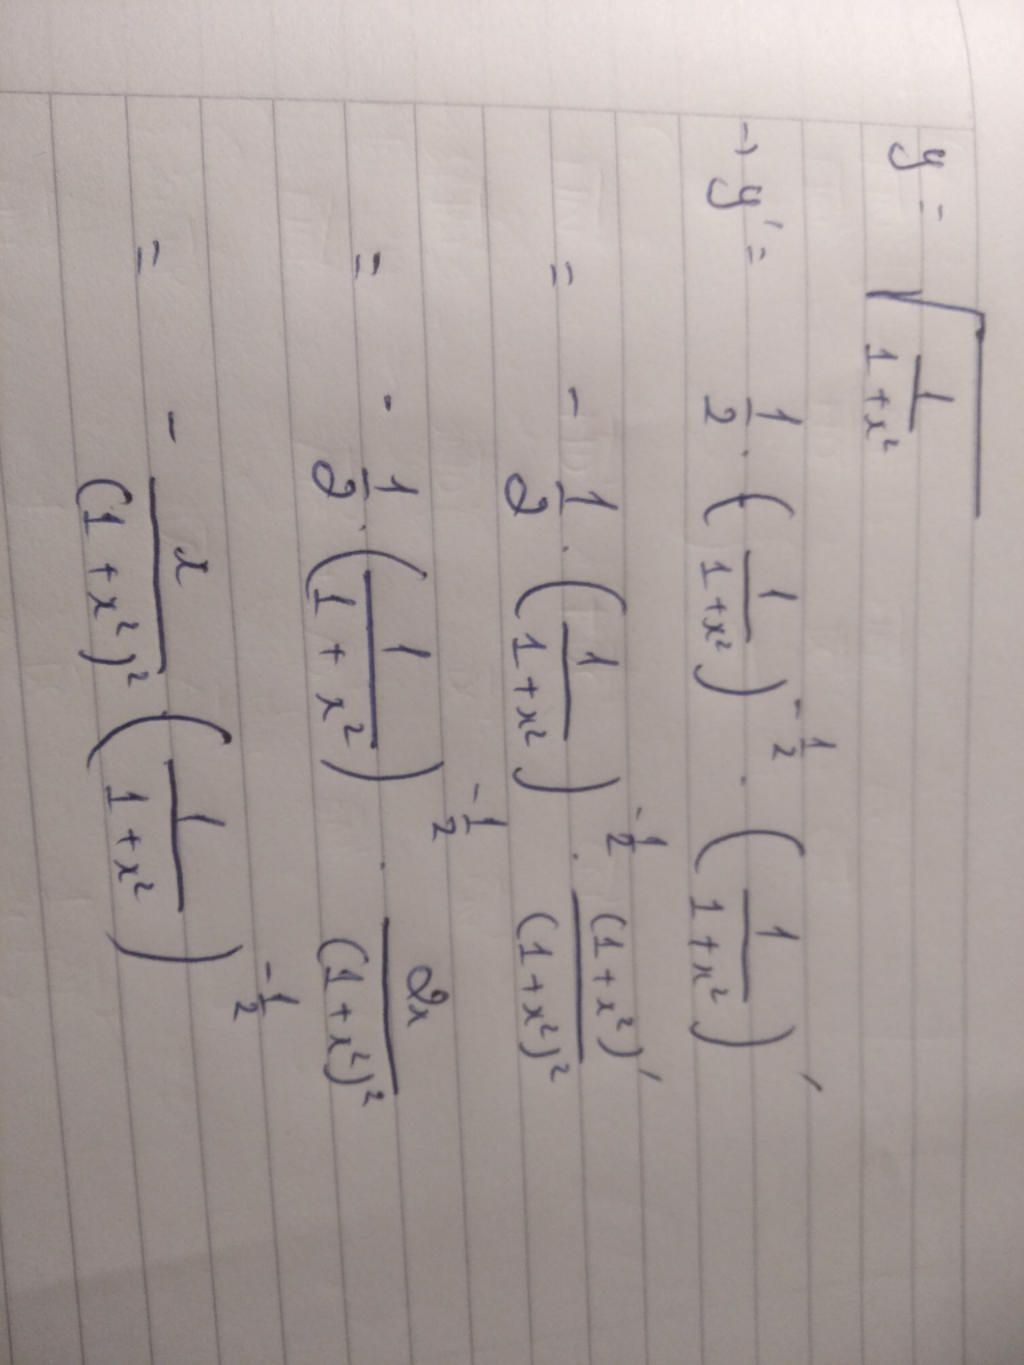 y = √(1/(1+x²))
→ y' = 1/2 · (1/(1+x²))^(-1/2) · (1/(1+x²))'
= - 1/2 · (1/(1+x²))^(-1/2) · (1+x²)'/(1+x²)²
= - 1/2 · (1/(1+x²))^(-1/2) · 2x/(1+x²)²
= - x/(1+x²)² · (1/(1+x²))^(-1/2)